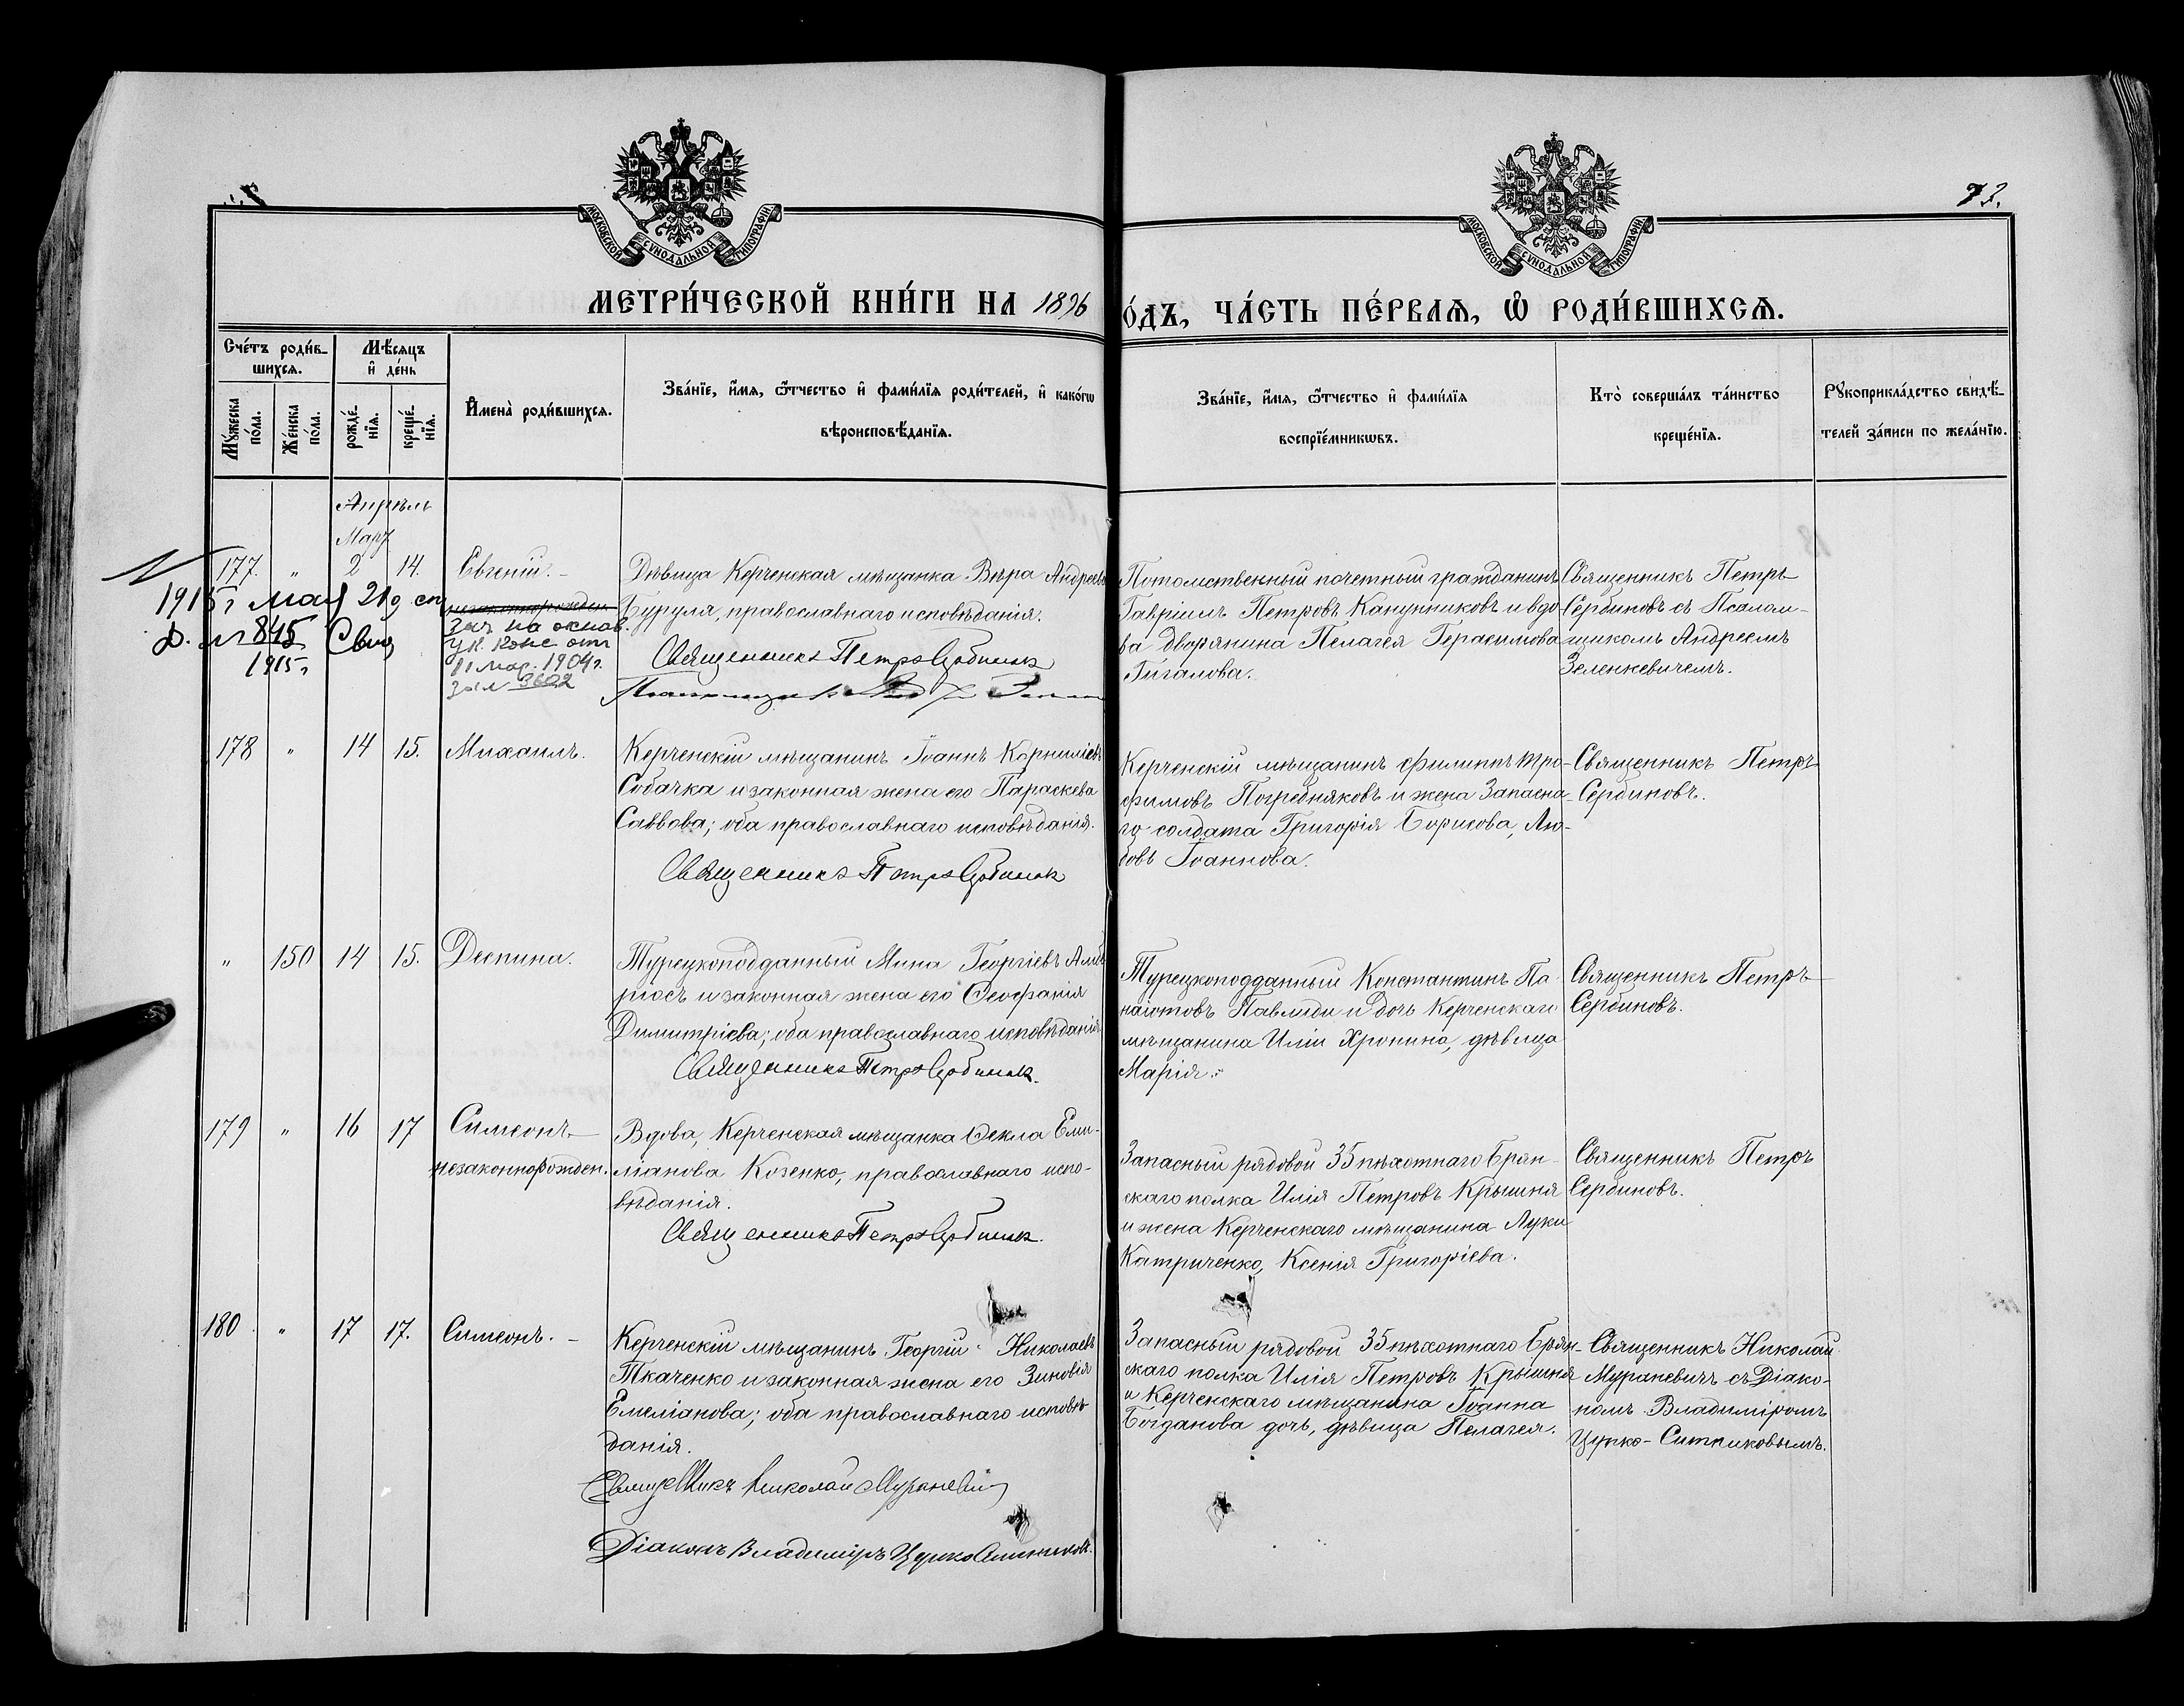 МОСКОВСКОЙ СѴНОДАЛЬНОЙ ТИПОГРАФІИ
МОСКОВСКОЙ СѴНОДАЛЬНОЙ ТИПОГРАФІИ
73.
МЕТРИ́ЧЕСКОЙ КНИ́ГИ НА 1896
О́ДЪ, ЧА́СТЬ ПЕ́РВАѦ, Ѡ҆ РОДИ́ВШИХСѦ.
Сче́тъ роди́в-
шихсѧ.
Мꙋ́жеска по́ла.
Же́нска по́ла.
Мѣ́сѧцъ
и҆ де́нь
рожде́-нїѧ.
креще́-нїѧ.
И҆мена̀ роди́вшихсѧ.
Зва́нїе, и҆́мѧ, ѻ҆́тчество и҆ фами́лїѧ роди́телей, и҆ како́гѡ
вѣроисповѣ́данїѧ.
Зва́нїе, и҆́мѧ, ѻ҆́тчество и҆ фами́лїѧ
воспрїе́мникѡвъ.
Кто̀ соверша́лъ та́инство
креще́нїѧ.
Рꙋкоприкла́дство свидѣ́-
телей за́писи по жела́нїю.
Апрѣль
Мар
177. " 2 14. Евгеній.-
незаконнорожден
Зач на основ.
Ук. Конс отъ
11 мар. 1904 г.
за № 3602
1915 г мая 21 д
№ 845 Свид
1915 г
Дѣвица Керченская мѣщанка Вѣра Андреева
Буруля, православнаго исповѣданія.
Священникъ Петръ Сербиновъ
Потомственный почетный гражданинъ
Гавріилъ Петровъ Канунниковъ и вдо-
ва дворянина Пелагея Герасимова
Гигалова.
Священникъ Петръ
Сербиновъ съ Псалом-
щикомъ Андреемъ
Зеленкевичемъ.
178 " 14 15. Михаилъ.
Керченскій мѣщанинъ Іоаннъ Корниліевъ
Собачка и законная жена его Параскева
Саввова; оба православнаго исповѣданія.
Священникъ Петръ Сербиновъ
Керченскій мѣщанинъ Филиппъ Тро-
фимовъ Погребняковъ и жена Запасна-
го солдата Григорія Борисова, Лю-
бовь Іоаннова.
Священникъ Петръ
Сербиновъ.
" 150 14 15. Деспина.
Турецкоподданный Мина Георгіевъ
ріосъ и законная жена его Ѳеофанія
Димитріева; оба православнаго исповѣданія
Священникъ Петръ Сербиновъ.
Турецкоподданный Константинъ Па-
наіотовъ Павлиди и дочь Керченскаго
мѣщанина Иліи Хронина, дѣвица
Марія.
Священникъ Петръ
Сербиновъ.
179 " 16 17 Симеонъ.-
незаконнорожден.
Вдова, Керченская мѣщанка Ѳекла Еми-
ліанова Козенко, православнаго испо-
вѣданія.
Священникъ Петръ Сербиновъ.
Запасный рядовой 35 пѣхотнаго Брян-
скаго полка Илія Петровъ Крышня
и жена Керченскаго мѣщанина Луки
Катриченко, Ксенія Григоріева.
Священникъ Петръ
Сербиновъ.
180 " 17 17. Симеонъ.-
Керченскій мѣщанинъ Георгій Николаевъ
Ткаченко и законная жена его Зиновія
Емеліанова; оба православнаго исповѣ-
данія.
Священникъ Николай Мураневичъ
Діаконъ Владиміръ Цурко-Ситниковъ.
Запасный рядовой 35 пѣхотнаго Брян-
скаго полка Илія Петровъ Крышня
и Керченскаго мѣщанина Іоанна
Богданова дочь, дѣвица Пелагея.
Священникъ Николай
Мураневичъ съ Діако-
номъ Владиміромъ
Цурко-Ситниковымъ.